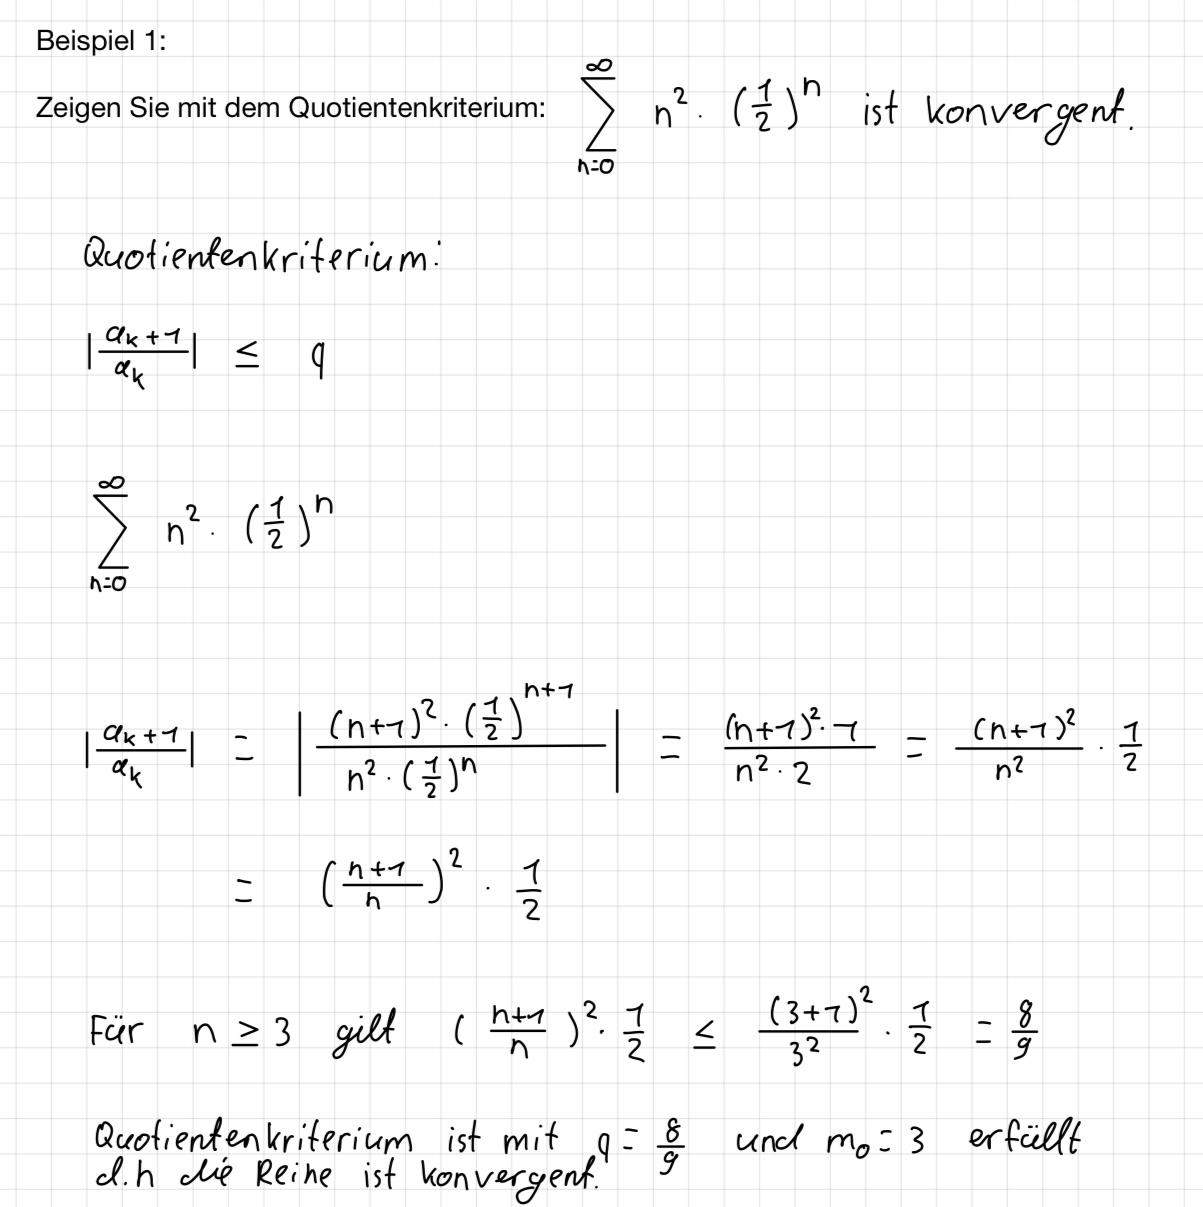 Beispiel 1:
Zeigen Sie mit dem Quotientenkriterium: ∑_{n=0}^{∞} n² · (1/2)ⁿ ist konvergent.
Quotientenkriterium:
|a_{k+1}/a_k| ≤ q
∑_{n=0}^{∞} n² · (1/2)ⁿ
|a_{k+1}/a_k| = |((n+1)² · (1/2)^{n+1})/(n² · (1/2)ⁿ)| = ((n+1)² · 1)/(n² · 2) = (n+1)²/n² · 1/2
= ((n+1)/n)² · 1/2
Für n ≥ 3 gilt ((n+1)/n)² · 1/2 ≤ (3+1)²/3² · 1/2 = 8/9
Quotientenkriterium ist mit q = 8/9 und m₀ = 3 erfüllt
d.h die Reihe ist konvergent.